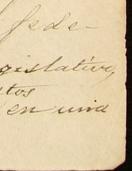 fede-
gislativo,
tos
en una